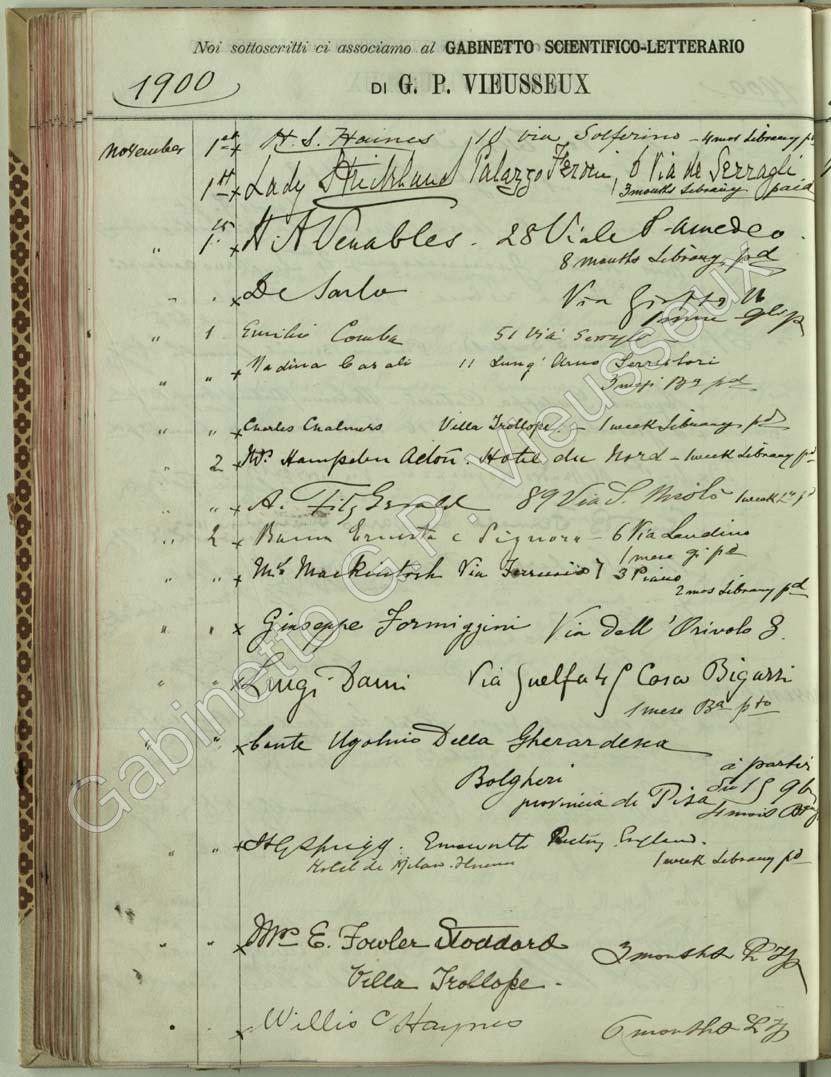 Noi sottoscritti ci associamo al GABINETTO SCIENTIFICO-LETTERARIO
1900
DI G. P. VIEUSSEUX
November 1st x H. S. Haines 18 via Solferino - 4 mos Library pd
1st x Lady Strickland Palazzo Feroni, 6 Via de Serragli
3 months Library paid
" 1st x H A Venables. 28 Viale P. Amedeo.
8 months Library pd
" " x De Sarlo Via Giotto
" 1 Emilio Comba 51 Via
" " x Nadina Casali 11 Lung' Arno Serristori
3 mesi Ba pd
" " x Charles Chalmers Villa Trollope. - 1 week Library pd
" 2 x Mrs Hampden Acton. Hotel du Nord - 1 week Library pd
" " x A. FitzGerald 89 Via S. Nicolò 1 week pd
" 2 x Ernesto e Signora - 6 Via Landino
1 mese pd
" " x Mackintosh Via 7 3 Piano
2 mos Library pd
" " x Giuseppe Formiggini Via dell' Orivolo 8.
" " x Luigi Dami Via Guelfa 45 Casa Bigazzi
1 mese Ba pto
" " x Conte Ugolino Della Gherardesca
Bolgheri à partir
provincia di Pisa du 15 9b
4 mois
" " x England.
Hotel de Milan 1 week Library pd
" " x Mrs E. Fowler Stoddard 3 months
Villa Trollope.
" x Willis C Haynes 6 months
Gabinetto G.P. Vieusseux